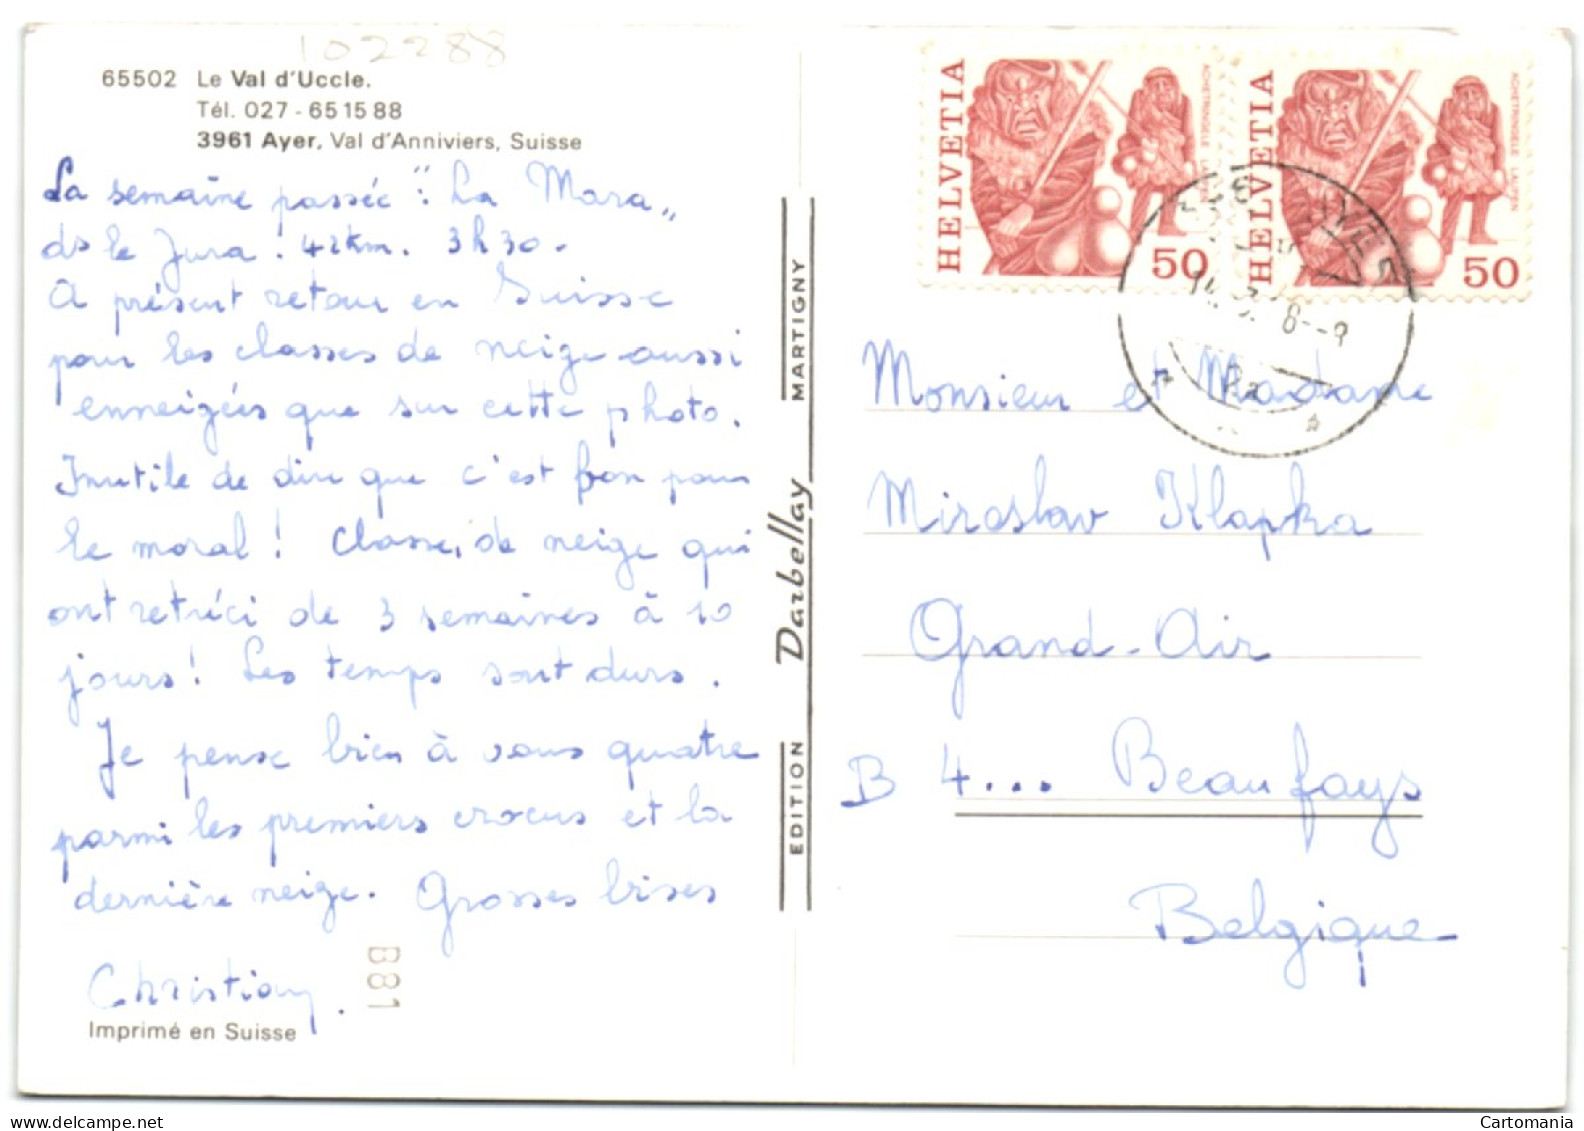 102288
65502 Le Val d'Uccle.
Tél. 027 - 65 15 88
3961 Ayer, Val d'Anniviers, Suisse
La semaine passée : "La Mara„
ds le Jura. 42km. 3h30.
A présent retour en Suisse
pour les classes de neige aussi
enneigées que sur cette photo.
Inutile de dire que c'est bon pour
le moral ! Classes de neige qui
ont retréci de 3 semaines à 10
jours ! Les temps sont durs.
Je pense bien à vous quatre
parmi les premiers crocus et la
dernière neige. Grosses bises
Christian.
B81
Imprimé en Suisse
EDITION Darbellay MARTIGNY
HELVETIA 50
ACHETRINGELE LAUPEN
HELVETIA 50
ACHETRINGELE LAUPEN
Monsieur et Madame
Miroslav Klapka
Grand-Air
B 4... Beaufays
Belgique
Cartomania